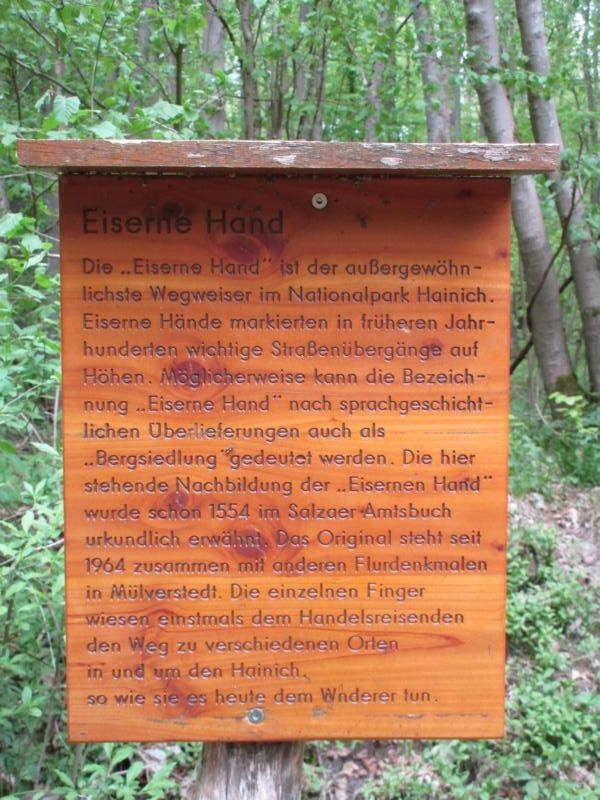 Eiserne Hand
Die „Eiserne Hand" ist der außergewöhn-
lichste Wegweiser im Nationalpark Hainich.
Eiserne Hände markierten in früheren Jahr-
hunderten wichtige Straßenübergänge auf
Höhen. Möglicherweise kann die Bezeich-
nung „Eiserne Hand" nach sprachgeschicht-
lichen Überlieferungen auch als
„Bergsiedlung" gedeutet werden. Die hier
stehende Nachbildung der „Eisernen Hand"
wurde schon 1554 im Salzaer Amtsbuch
urkundlich erwähnt. Das Original steht seit
1964 zusammen mit anderen Flurdenkmalen
in Mülverstedt. Die einzelnen Finger
wiesen einstmals dem Handelsreisenden
den Weg zu verschiedenen Orten
in und um den Hainich,
so wie sie es heute dem Wnderer tun.